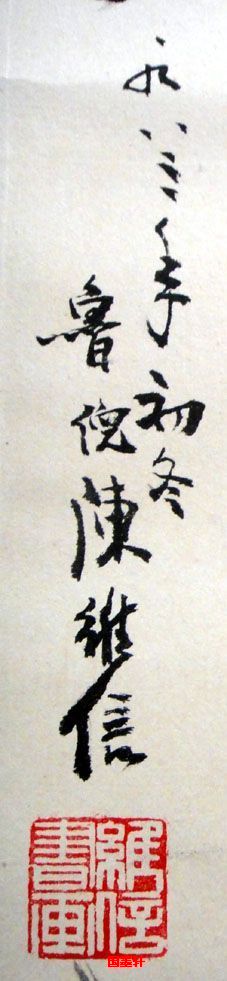 一九八三年初冬
魯倪陳維信
維信
書画